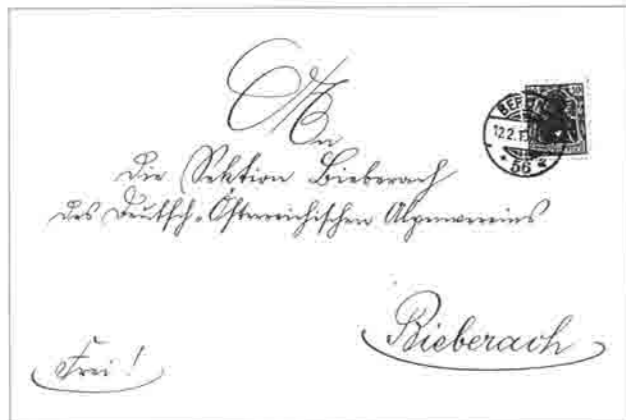 An
die Sektion Bieberach
des Deutsch-Österreichischen Alpenvereins
Bieberach
Frei!
BERLIN
12.2.1
* 56 a